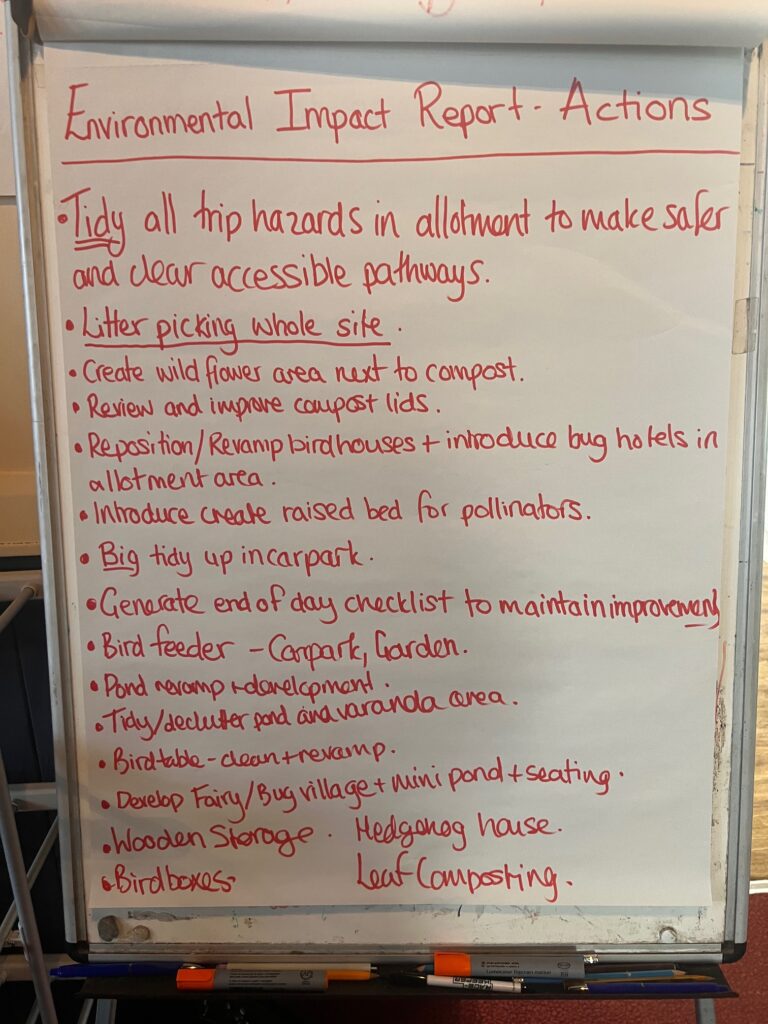 Environmental Impact Report - Actions
• Tidy all trip hazards in allotment to make safer
and clear accessible pathways.
• Litter picking whole site.
• Create wild flower area next to compost.
• Review and improve compost lids.
• Reposition/Revamp birdhouses + introduce bug hotels in
allotment area.
• Introduce create raised bed for pollinators.
• Big tidy up in carpark.
• Generate end of day checklist to maintain improvements
• Bird feeder - Carpark, Garden.
• Pond revamp + development.
• Tidy/declutter pond and varanda area.
• Birdtable - clean + revamp.
• Develop Fairy/Bug village + mini pond + seating.
• Wooden Storage. Hedgehog house.
• Birdboxes. Leaf Composting.